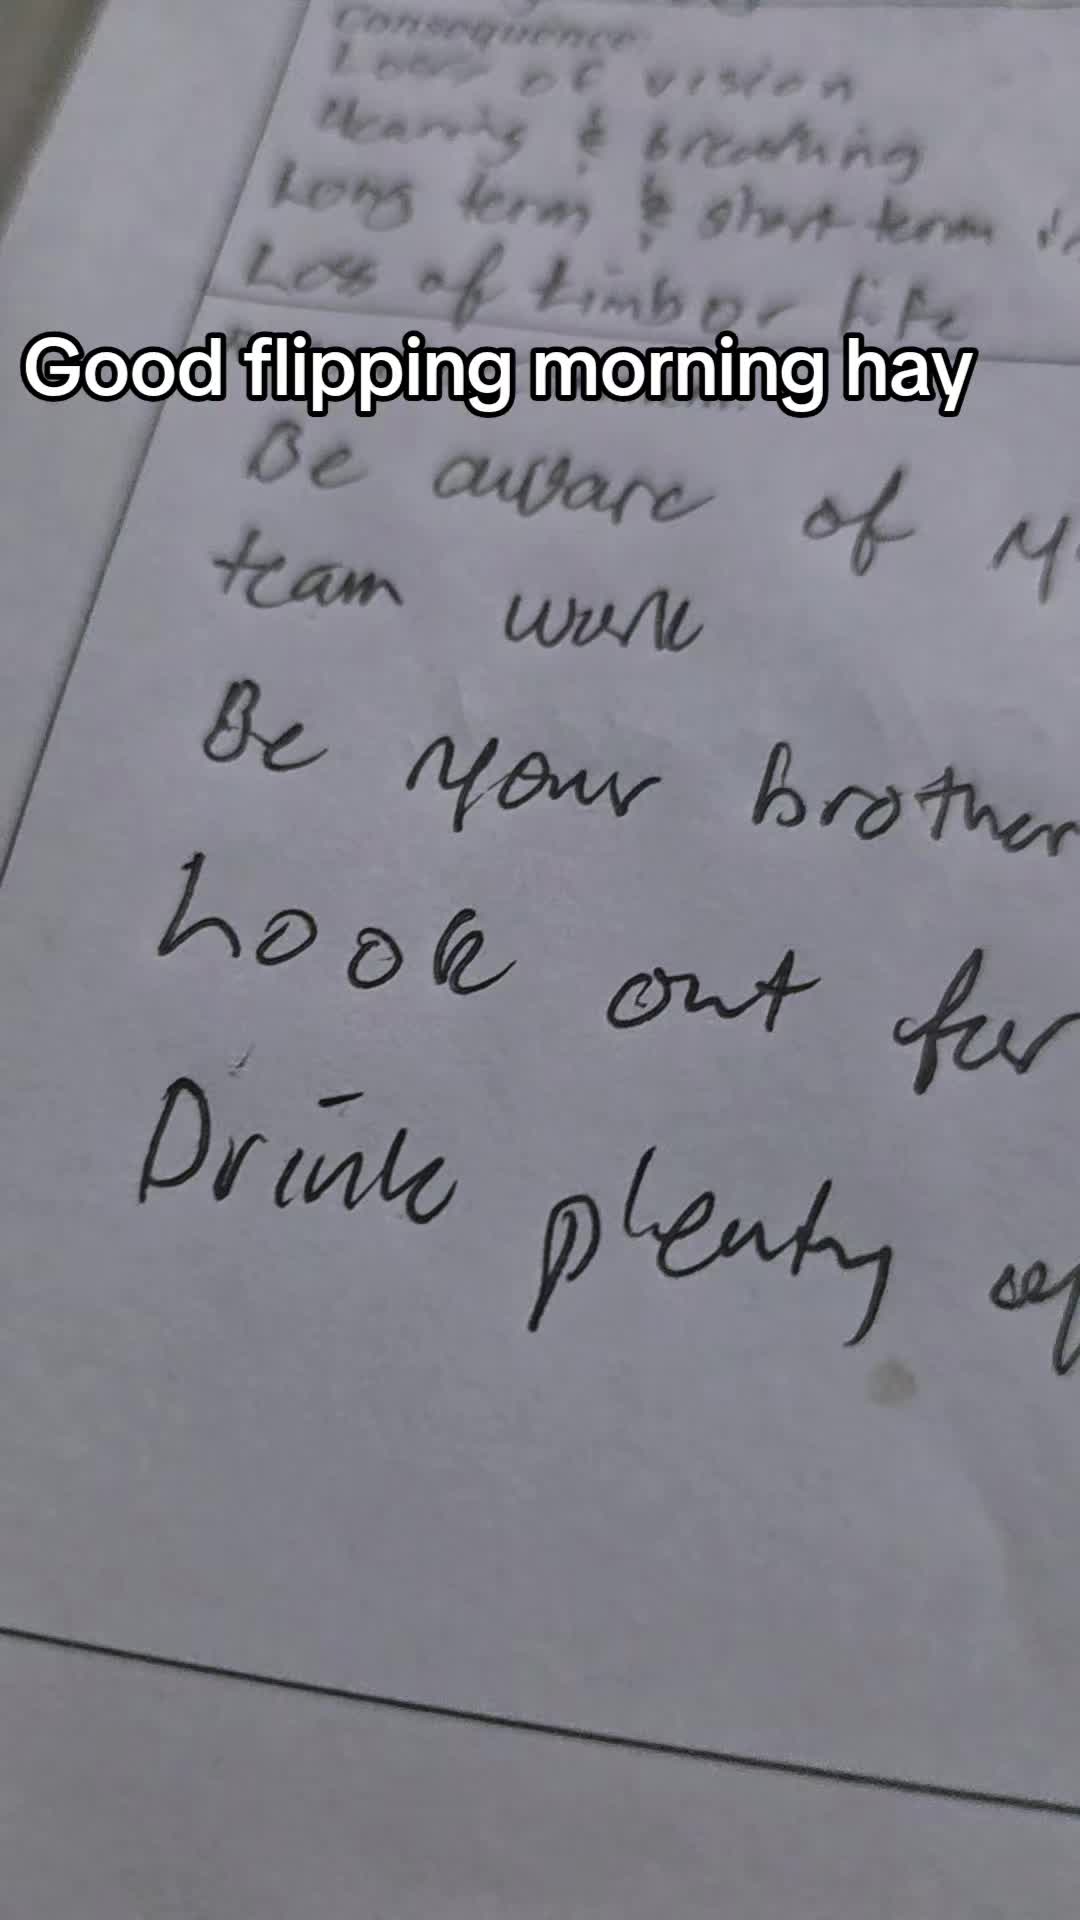 Consequence:
Loss of vision
Hearing & breathing
Long term & short term
Loss of limb or life
Good flipping morning hay
Be aware of
team work
Be your brother
Look out for
Drink plenty of